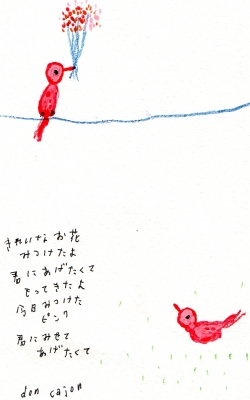 きれいなお花
みつけたよ
君にあげたくて
とってきたよ
今日みつけた
ピンク
君にみせて
あげたくて
don cajon